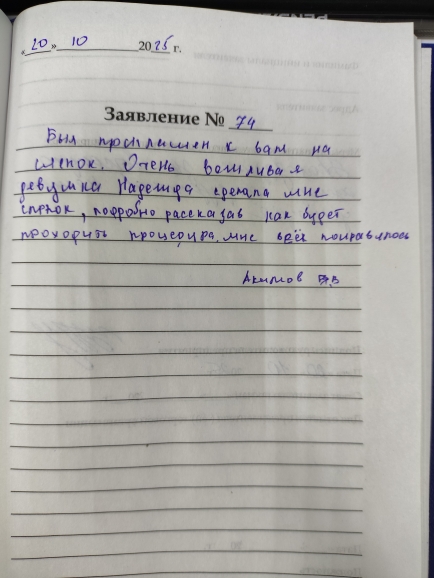 «20» 10 2025 г.
Заявление № 74
Был приглашен к вам на
слепок. Очень вежливая
девушка Надежда сделала мне
слепок, подробно рассказав как будет
проходить процедура. мне всё понравилось
Акимов В.В